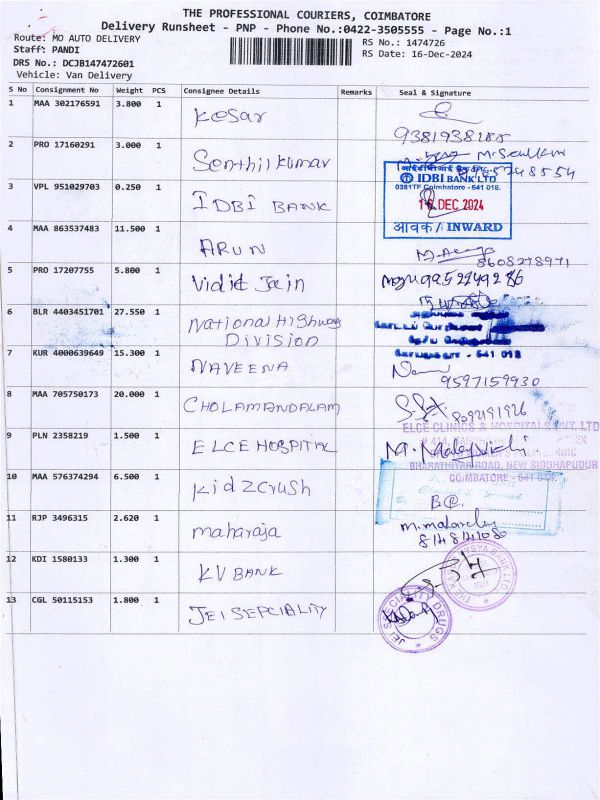 THE PROFESSIONAL COURIERS, COIMBATORE
Delivery Runsheet - PNP - Phone No.:0422-3505555 - Page No.:1
Route: MO AUTO DELIVERY
RS No.: 1474726
Staff: PANDI
RS Date: 16-Dec-2024
DRS No.: DCJB147472601
Vehicle: Van Delivery
S No Consignment No Weight PCS Consignee Details Remarks Seal & Signature
1 MAA 302176591 3.800 1 Kesar
9381938188
2 PRO 17160291 3.000 1 Senthilkumar
3 VPL 951029703 0.250 1 IDBI BANK
आई डी बी आई बैंक लि
IDBI BANK LTD
0381TF Coimbatore - 641 018.
16 DEC 2024
आवक / INWARD
4 MAA 863537483 11.500 1 ARUN
8608278971
5 PRO 17207755 5.800 1 Vidit Jain
9952249286
6 BLR 4403451701 27.550 1 National Highway
Division
641 018
7 KUR 4000639649 15.300 1 NAVEENA
9597159930
8 MAA 705750173 20.000 1 CHOLAMANDALAM
9092191926
9 PLN 2358219 1.500 1 ELCE HOSPITAL
ELCE CLINICS & HOSPITALS PVT. LTD
BHARATHIYAR ROAD, NEW SIDDHAPUDUR
COIMBATORE - 641 0
10 MAA 576374294 6.500 1 Kidzcrush
11 RJP 3496315 2.620 1 maharaja
12 KDI 1580133 1.300 1 KV BANK
VYSYA BANK LTD
13 CGL 50115153 1.800 1 JEI SEPCIALITY
JEI SPECIALITY DRUGS